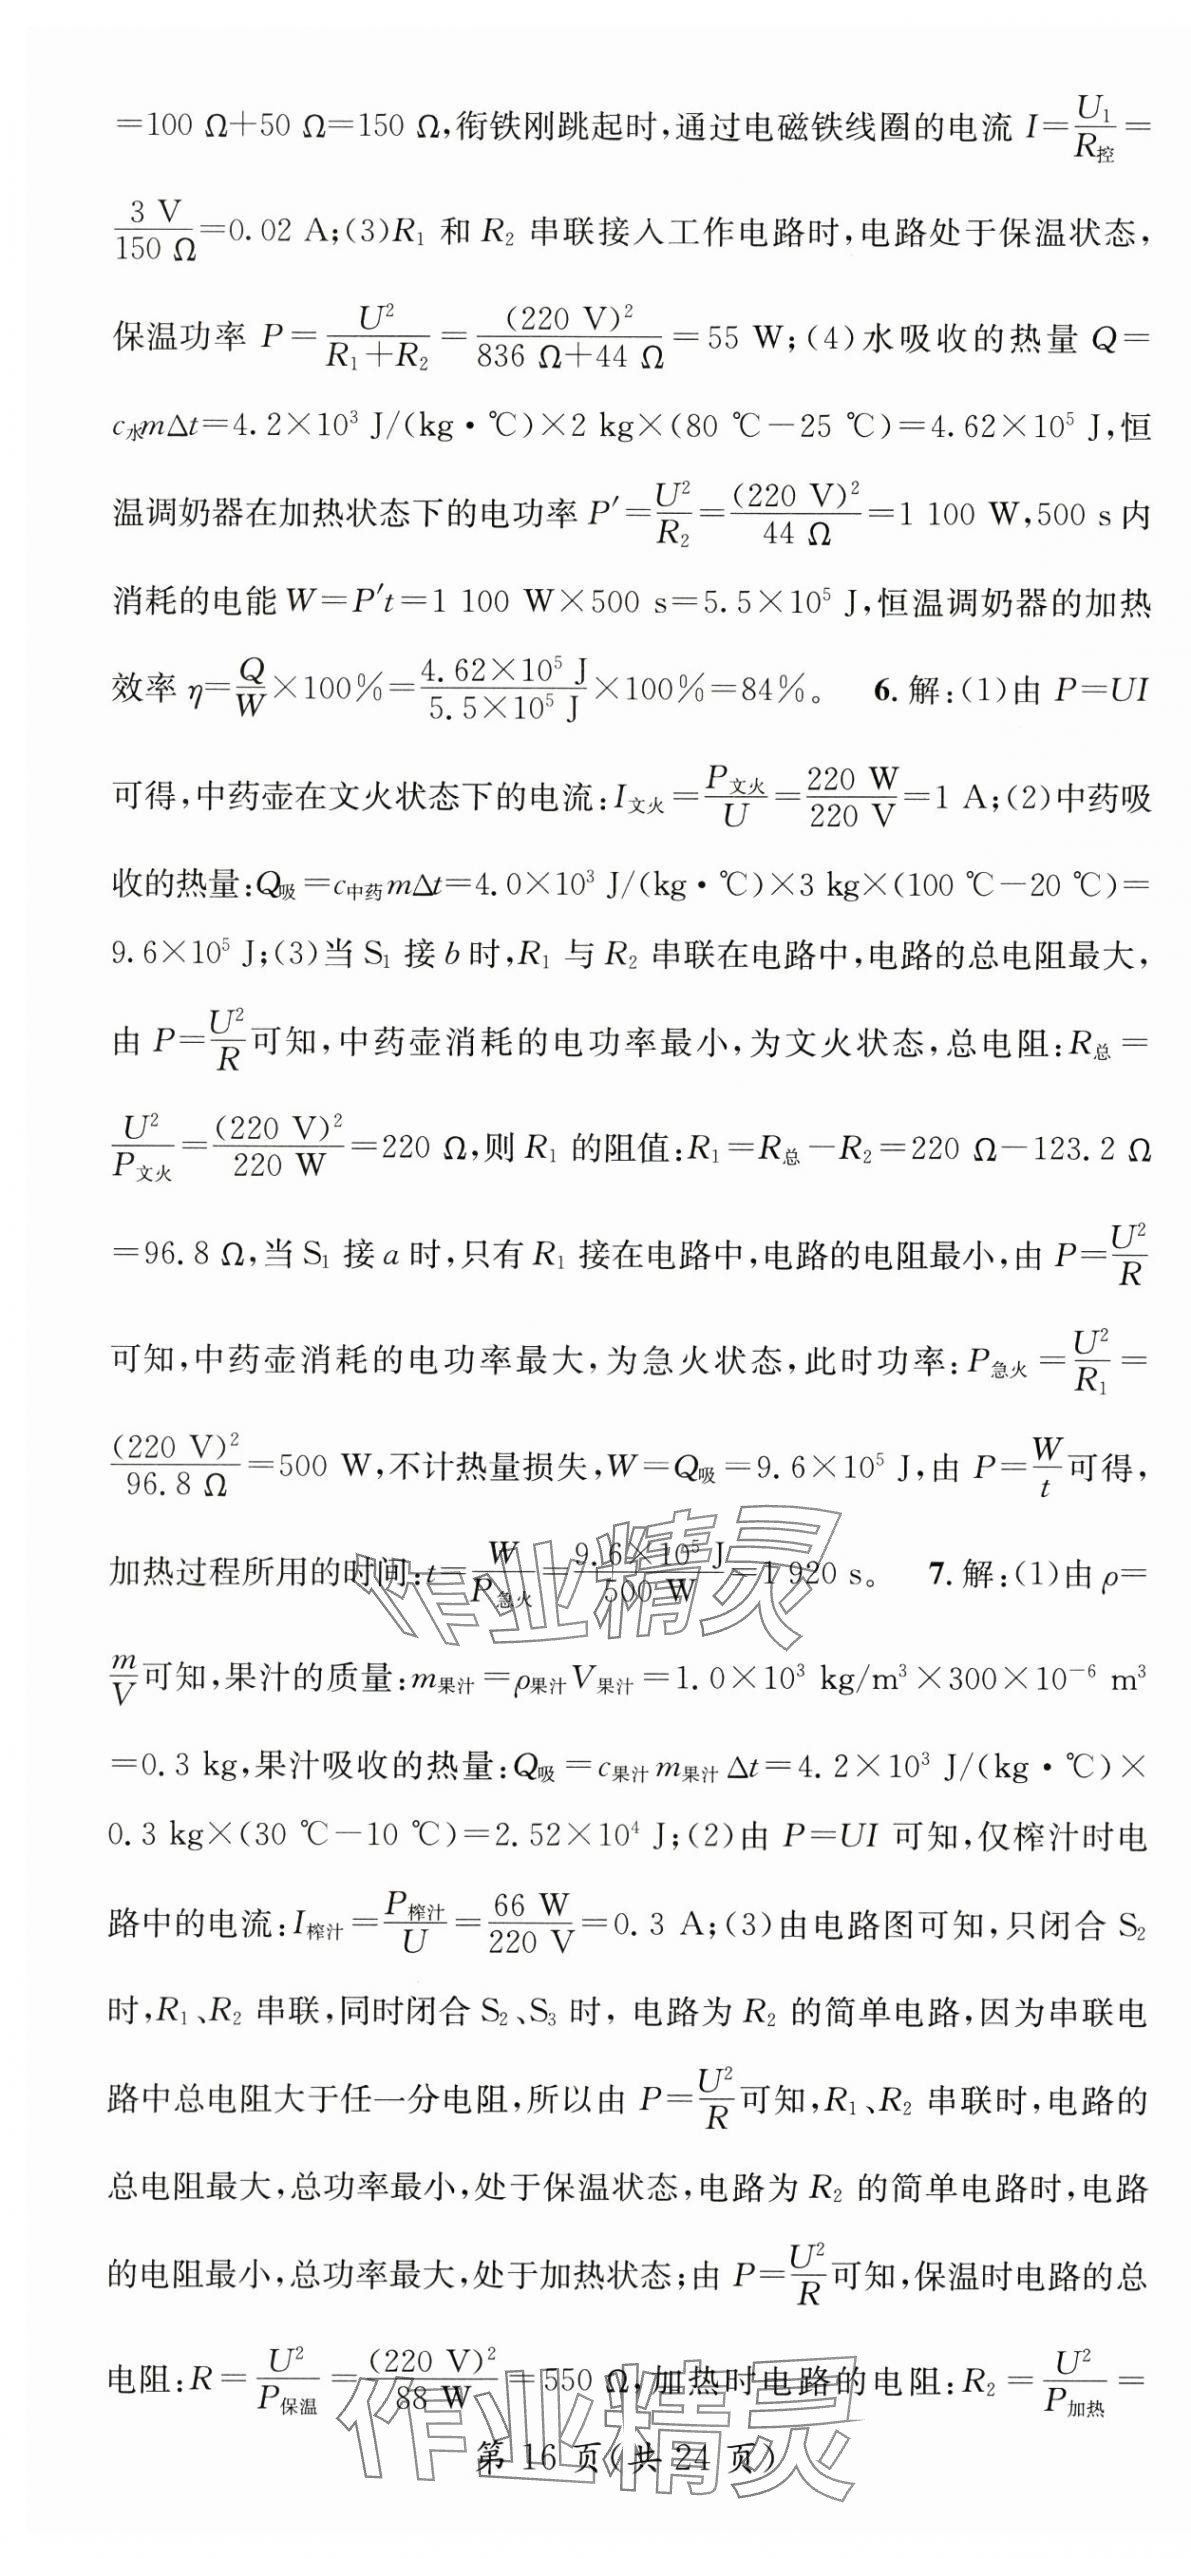 =100 Ω+50 Ω=150 Ω,衔铁刚跳起时,通过电磁铁线圈的电流 I=U₁/R控=
3 V/150 Ω=0.02 A;(3)R₁ 和 R₂ 串联接入工作电路时,电路处于保温状态,
保温功率 P=U²/(R₁+R₂)=(220 V)²/(836 Ω+44 Ω)=55 W;(4)水吸收的热量 Q=
c水mΔt=4.2×10³ J/(kg·℃)×2 kg×(80 ℃-25 ℃)=4.62×10⁵ J,恒
温调奶器在加热状态下的电功率 P′=U²/R₂=(220 V)²/44 Ω=1 100 W,500 s内
消耗的电能 W=P′t=1 100 W×500 s=5.5×10⁵ J,恒温调奶器的加热
效率 η=Q/W×100%=4.62×10⁵ J/5.5×10⁵ J×100%=84%。 6.解:(1)由 P=UI
可得,中药壶在文火状态下的电流:I文火=P文火/U=220 W/220 V=1 A;(2)中药吸
收的热量:Q吸=c中药mΔt=4.0×10³ J/(kg·℃)×3 kg×(100 ℃-20 ℃)=
9.6×10⁵ J;(3)当 S₁ 接 b 时,R₁ 与 R₂ 串联在电路中,电路的总电阻最大,
由 P=U²/R可知,中药壶消耗的电功率最小,为文火状态,总电阻:R总=
U²/P文火=(220 V)²/220 W=220 Ω,则 R₁ 的阻值:R₁=R总-R₂=220 Ω-123.2 Ω
=96.8 Ω,当 S₁ 接 a 时,只有 R₁ 接在电路中,电路的电阻最小,由 P=U²/R
可知,中药壶消耗的电功率最大,为急火状态,此时功率:P急火=U²/R₁=
(220 V)²/96.8 Ω=500 W,不计热量损失,W=Q吸=9.6×10⁵ J,由 P=W/t可得,
加热过程所用的时间:t=W/P急火=9.6×10⁵ J/500 W=1 920 s。 7.解:(1)由 ρ=
m/V可知,果汁的质量:m果汁=ρ果汁V果汁=1.0×10³ kg/m³×300×10⁻⁶ m³
=0.3 kg,果汁吸收的热量:Q吸=c果汁m果汁Δt=4.2×10³ J/(kg·℃)×
0.3 kg×(30 ℃-10 ℃)=2.52×10⁴ J;(2)由 P=UI 可知,仅榨汁时电
路中的电流:I榨汁=P榨汁/U=66 W/220 V=0.3 A;(3)由电路图可知,只闭合 S₂
时,R₁、R₂ 串联,同时闭合 S₂、S₃ 时,电路为 R₂ 的简单电路,因为串联电
路中总电阻大于任一分电阻,所以由 P=U²/R可知,R₁、R₂ 串联时,电路的
总电阻最大,总功率最小,处于保温状态,电路为 R₂ 的简单电路时,电路
的电阻最小,总功率最大,处于加热状态;由 P=U²/R可知,保温时电路的总
电阻:R=U²/P保温=(220 V)²/88 W=550 Ω,加热时电路的电阻:R₂=U²/P加热=
第 16 页(共 24 页)
作业精灵
作业精灵